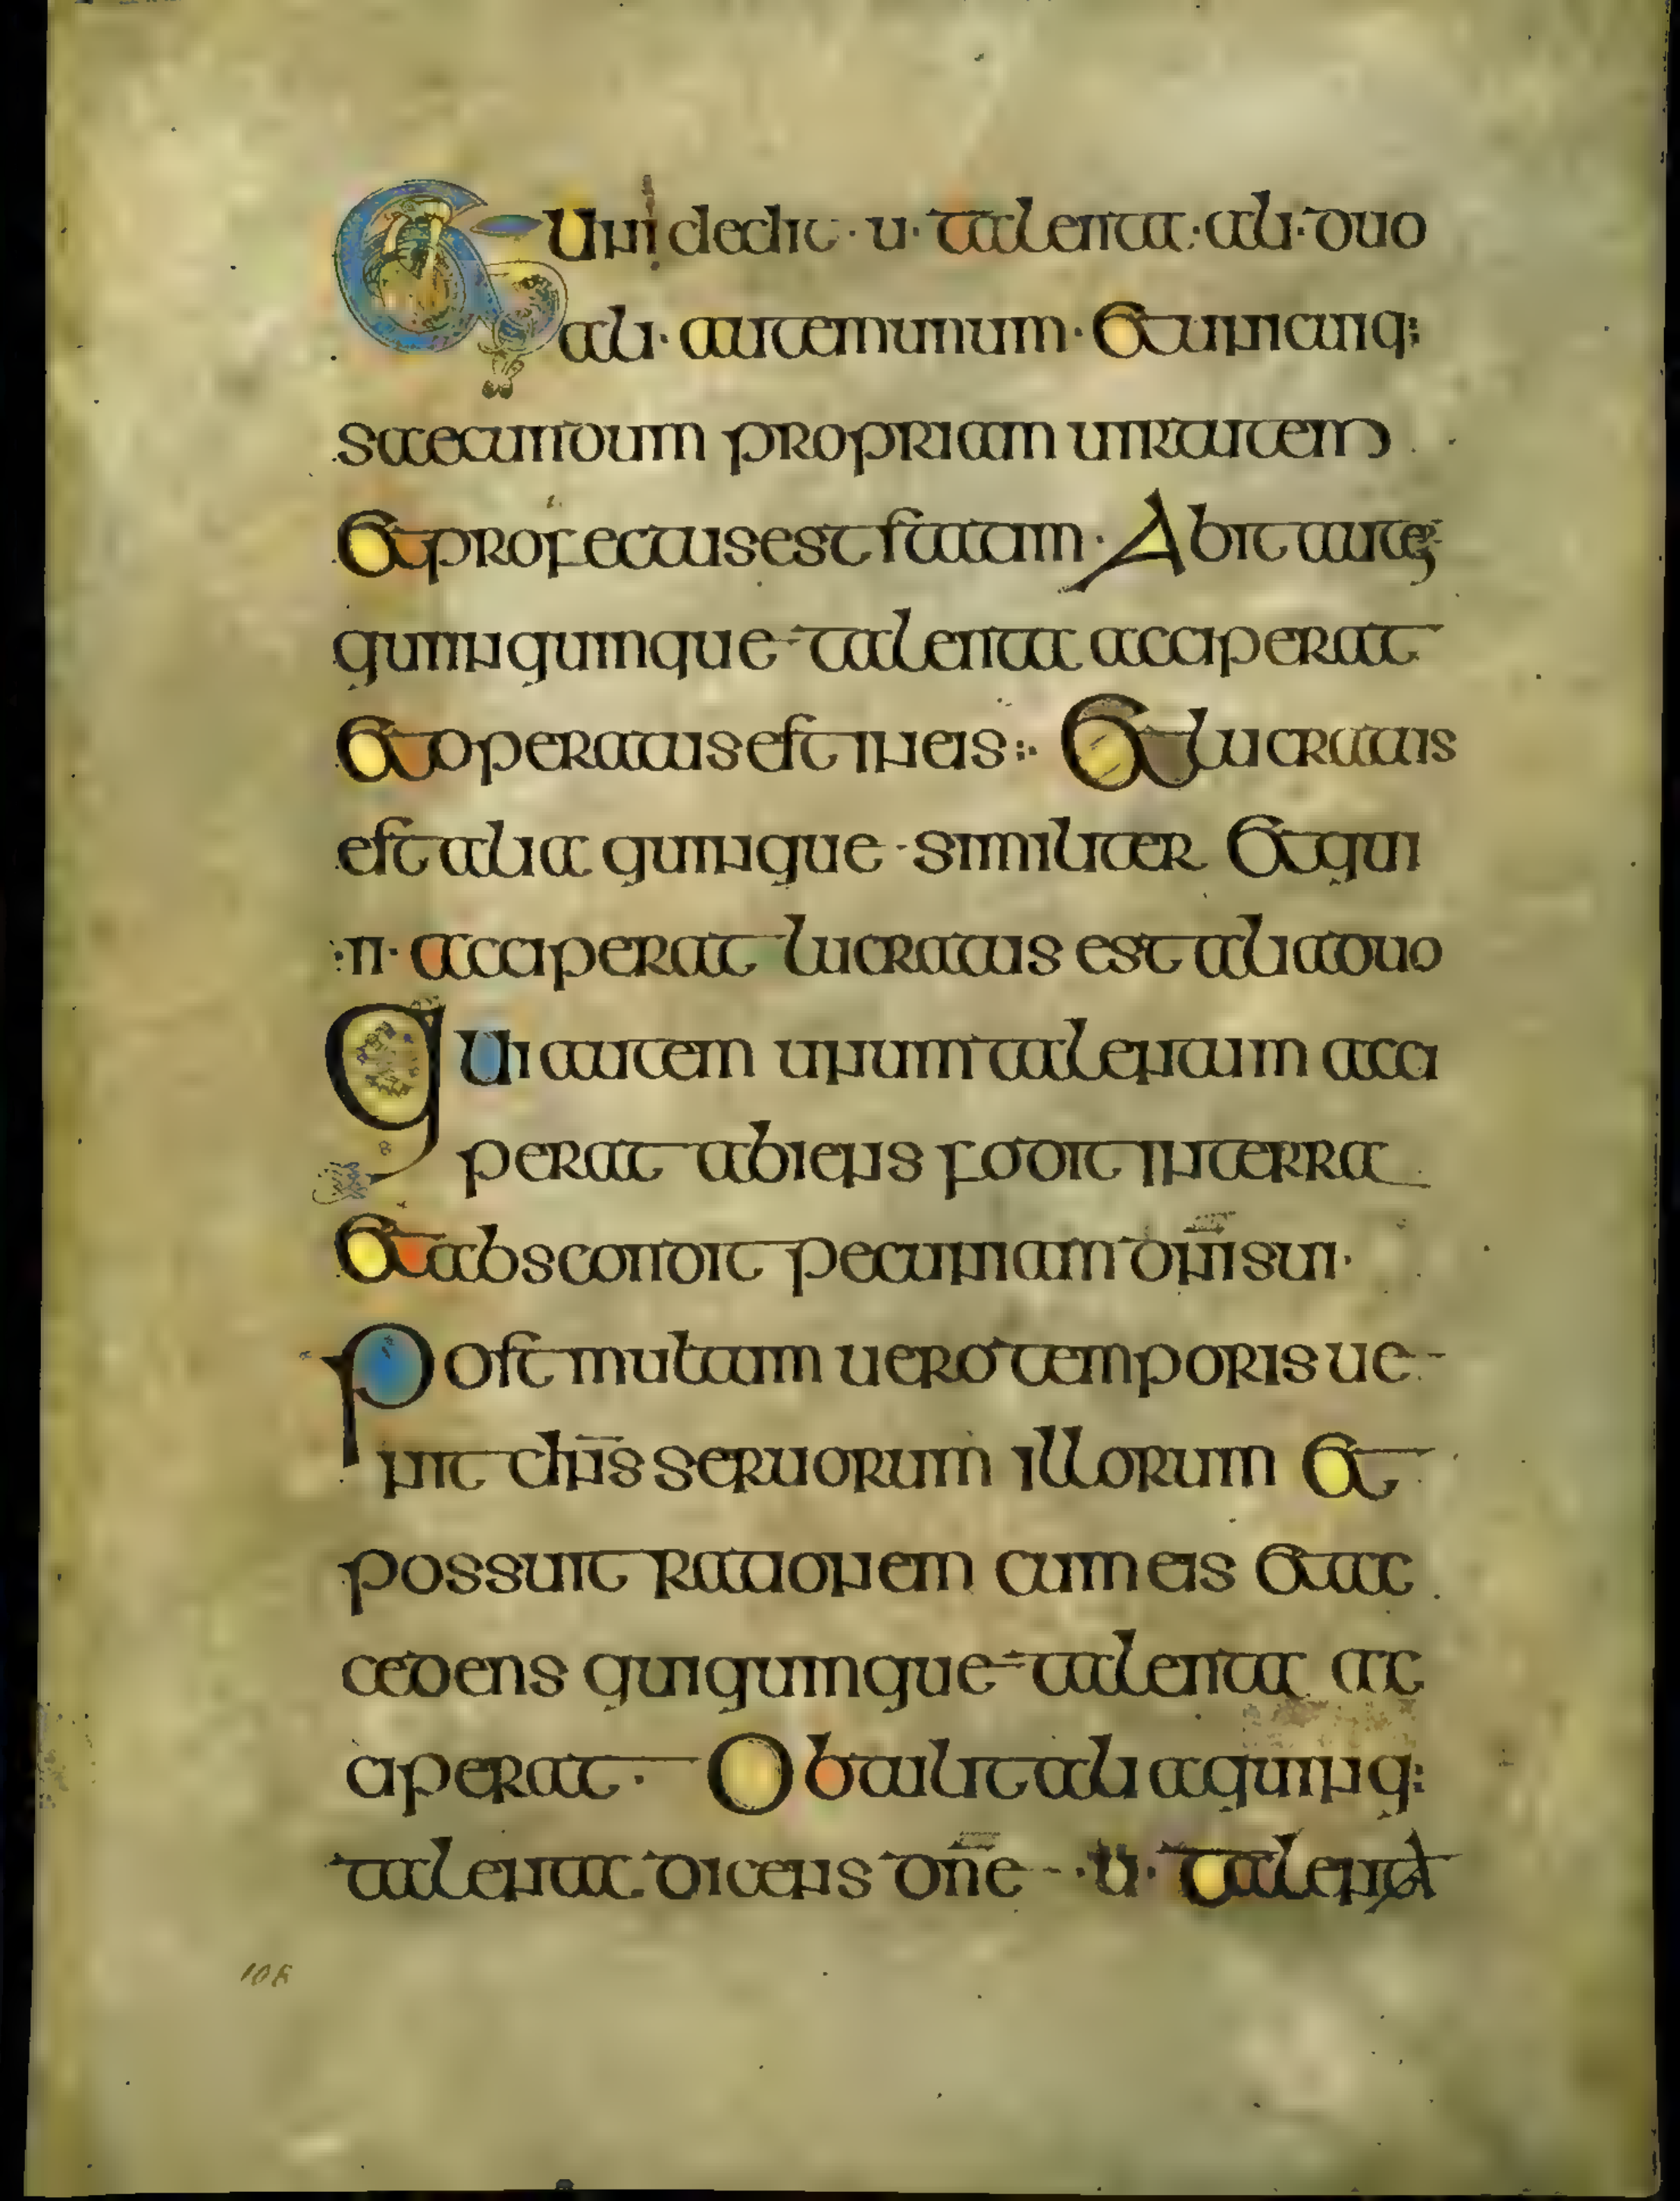 Et uni dedit · u · talenta · alii · duo
alii · autem unum · Et unicuiq:
saecundum propriam uirtutem
Et profectus est statim · Abiit autē
qui quinque talenta acciperat
Et operatus est in eis :· Et lucratus
est alia quinque · similiter Et qui
· II · acciperat lucratus est alia duo
Qui autem unum talentum acci
perat abiens fodit in terra
Et abscondit pecuniam dn̄i sui ·
Post multum uero temporis ue
nit dn̄s seruorum illorum Et
possuit rationem cum eis Et ac
cedens qui quinque talenta ac
ciperat · Obtulit alia quinq:
talenta dicens dn̄e · u · talenta
108